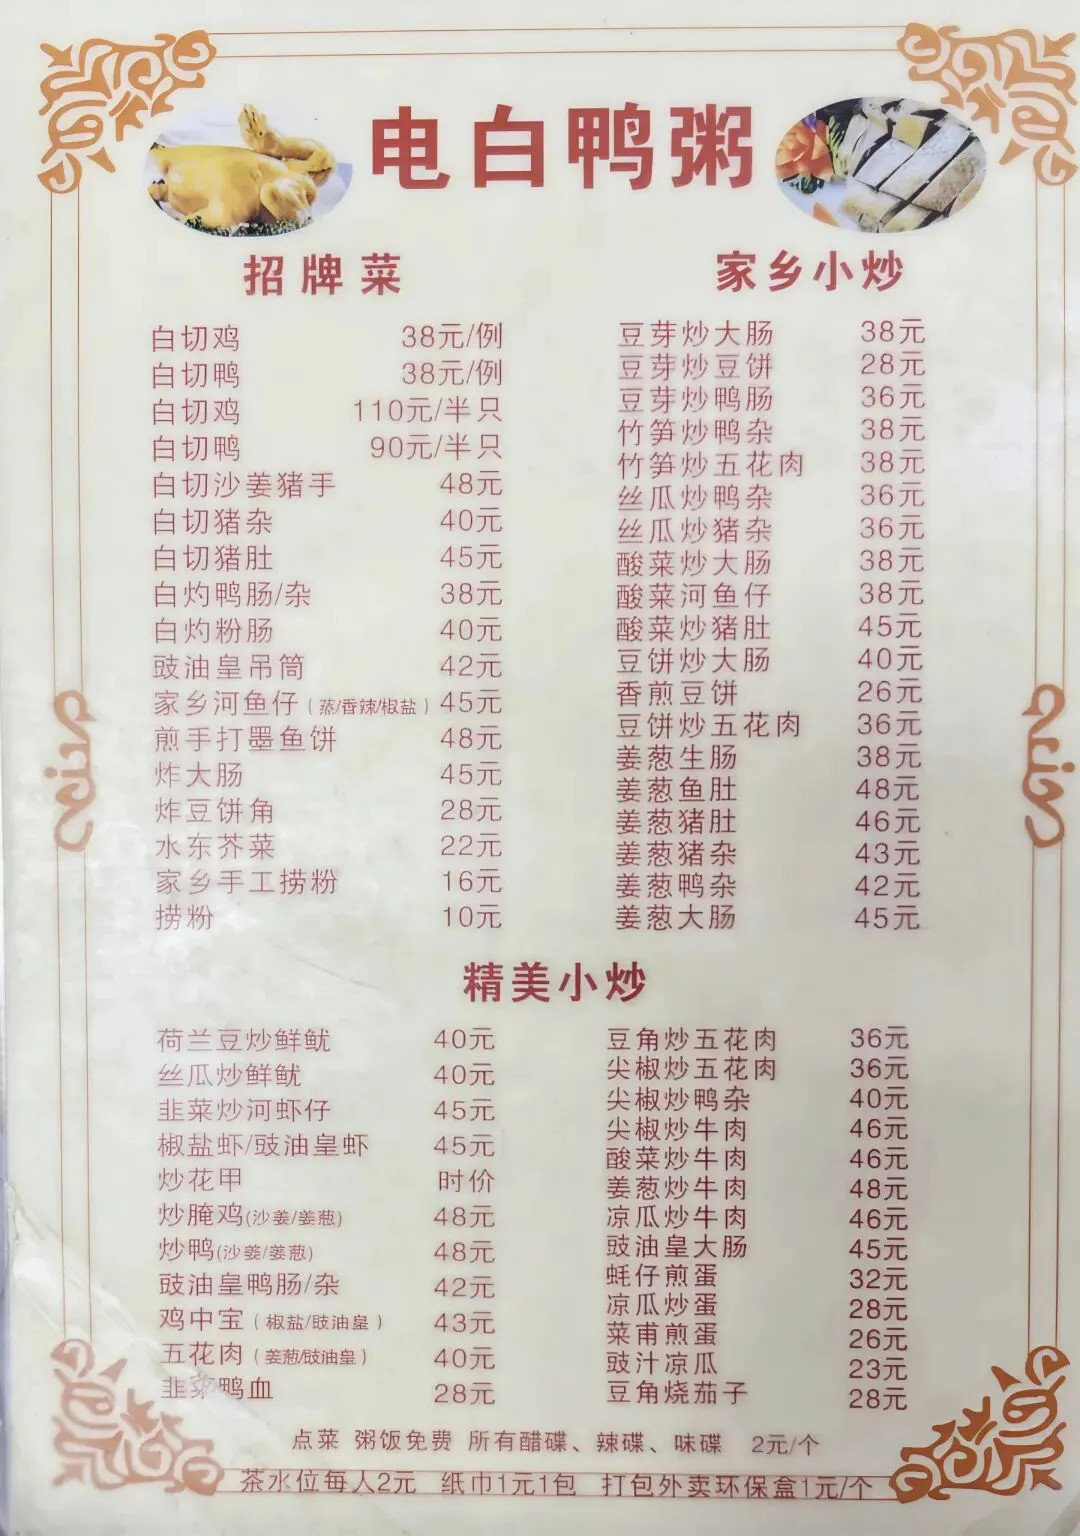 电白鸭粥
招牌菜
白切鸡 38元/例
白切鸭 38元/例
白切鸡 110元/半只
白切鸭 90元/半只
白切沙姜猪手 48元
白切猪杂 40元
白切猪肚 45元
白灼鸭肠/杂 38元
白灼粉肠 40元
豉油皇吊筒 42元
家乡河鱼仔(蒸/香辣/椒盐) 45元
煎手打墨鱼饼 48元
炸大肠 45元
炸豆饼角 28元
水东芥菜 22元
家乡手工捞粉 16元
捞粉 10元
家乡小炒
豆芽炒大肠 38元
豆芽炒豆饼 28元
豆芽炒鸭肠 36元
竹笋炒鸭杂 38元
竹笋炒五花肉 38元
丝瓜炒鸭杂 36元
丝瓜炒猪杂 36元
酸菜炒大肠 38元
酸菜河鱼仔 38元
酸菜炒猪肚 45元
豆饼炒大肠 40元
香煎豆饼 26元
豆饼炒五花肉 36元
姜葱生肠 38元
姜葱鱼肚 48元
姜葱猪肚 46元
姜葱猪杂 43元
姜葱鸭杂 42元
姜葱大肠 45元
精美小炒
荷兰豆炒鲜鱿 40元
丝瓜炒鲜鱿 40元
韭菜炒河虾仔 45元
椒盐虾/豉油皇虾 45元
炒花甲 时价
炒腌鸡(沙姜/姜葱) 48元
炒鸭(沙姜/姜葱) 48元
豉油皇鸭肠/杂 42元
鸡中宝(椒盐/豉油皇) 43元
五花肉(姜葱/豉油皇) 40元
韭菜鸭血 28元
豆角炒五花肉 36元
尖椒炒五花肉 36元
尖椒炒鸭杂 40元
尖椒炒牛肉 46元
酸菜炒牛肉 46元
姜葱炒牛肉 48元
凉瓜炒牛肉 46元
豉油皇大肠 45元
蚝仔煎蛋 32元
凉瓜炒蛋 28元
菜甫煎蛋 26元
豉汁凉瓜 23元
豆角烧茄子 28元
点菜 粥饭免费 所有醋碟、辣碟、味碟 2元/个
茶水位每人2元 纸巾1元1包 打包外卖环保盒1元/个